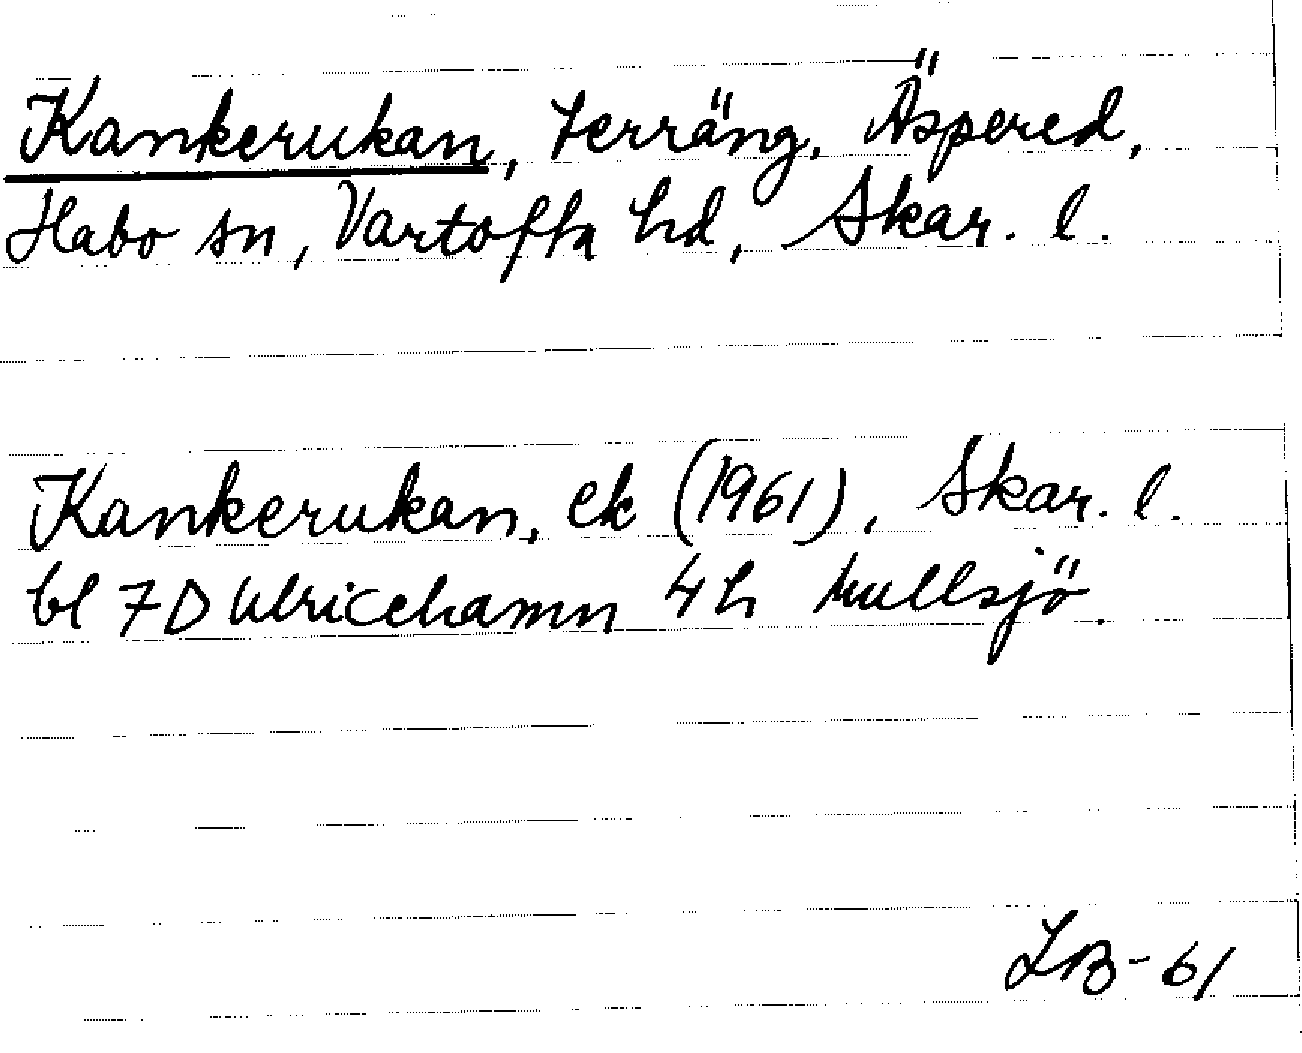 Kankerukan, terräng, Äspered,
Habo sn, Vartofta hd, Skar. l.
Kankerukan, ek (1961), Skar. l.
bl 7D Ulricehamn 4h Mullsjö.
LB-61